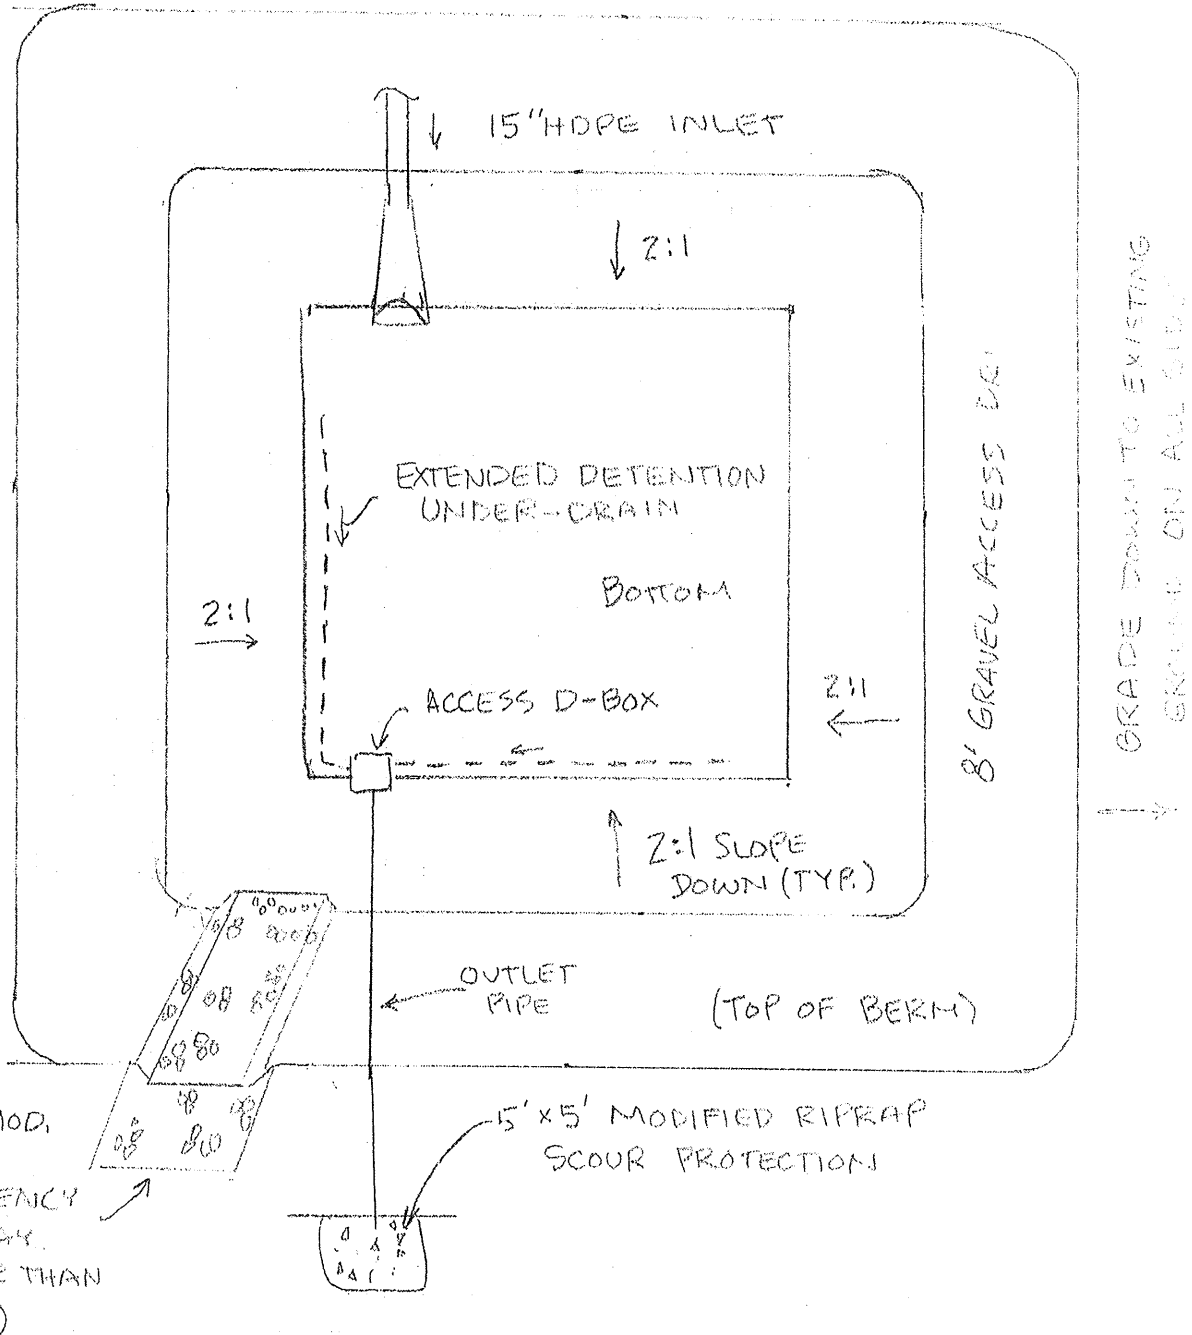 15" HDPE INLET
2:1
EXTENDED DETENTION
UNDER-DRAIN
BOTTOM
2:1
ACCESS D-BOX
2:1
2:1 SLOPE
DOWN (TYP.)
8' GRAVEL ACCESS
GRADE DOWN TO EXISTING
ON ALL
OUTLET
PIPE
(TOP OF BERM)
5' x 5' MODIFIED RIPRAP
SCOUR PROTECTION
THAN
)